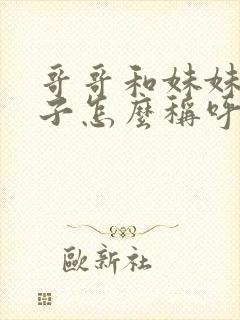 哥哥和妹妹
子怎麼稱呼
歐新社